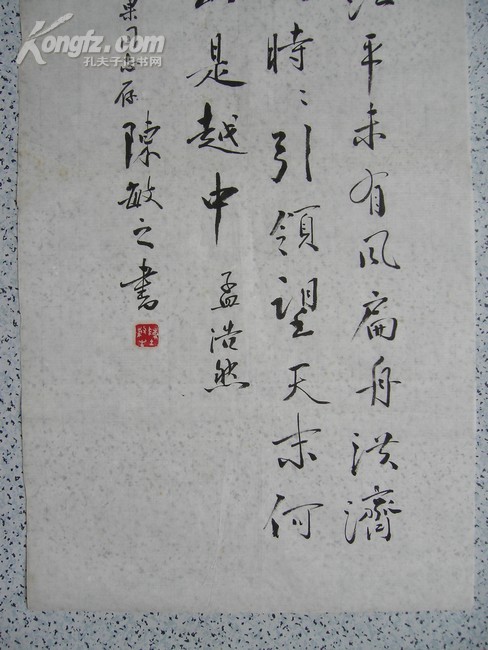 江平未有風扁舟洪濟
時〻引領望天末何
山是越中 孟浩然
陳敏之書
Kongfz.com
孔夫子旧书网